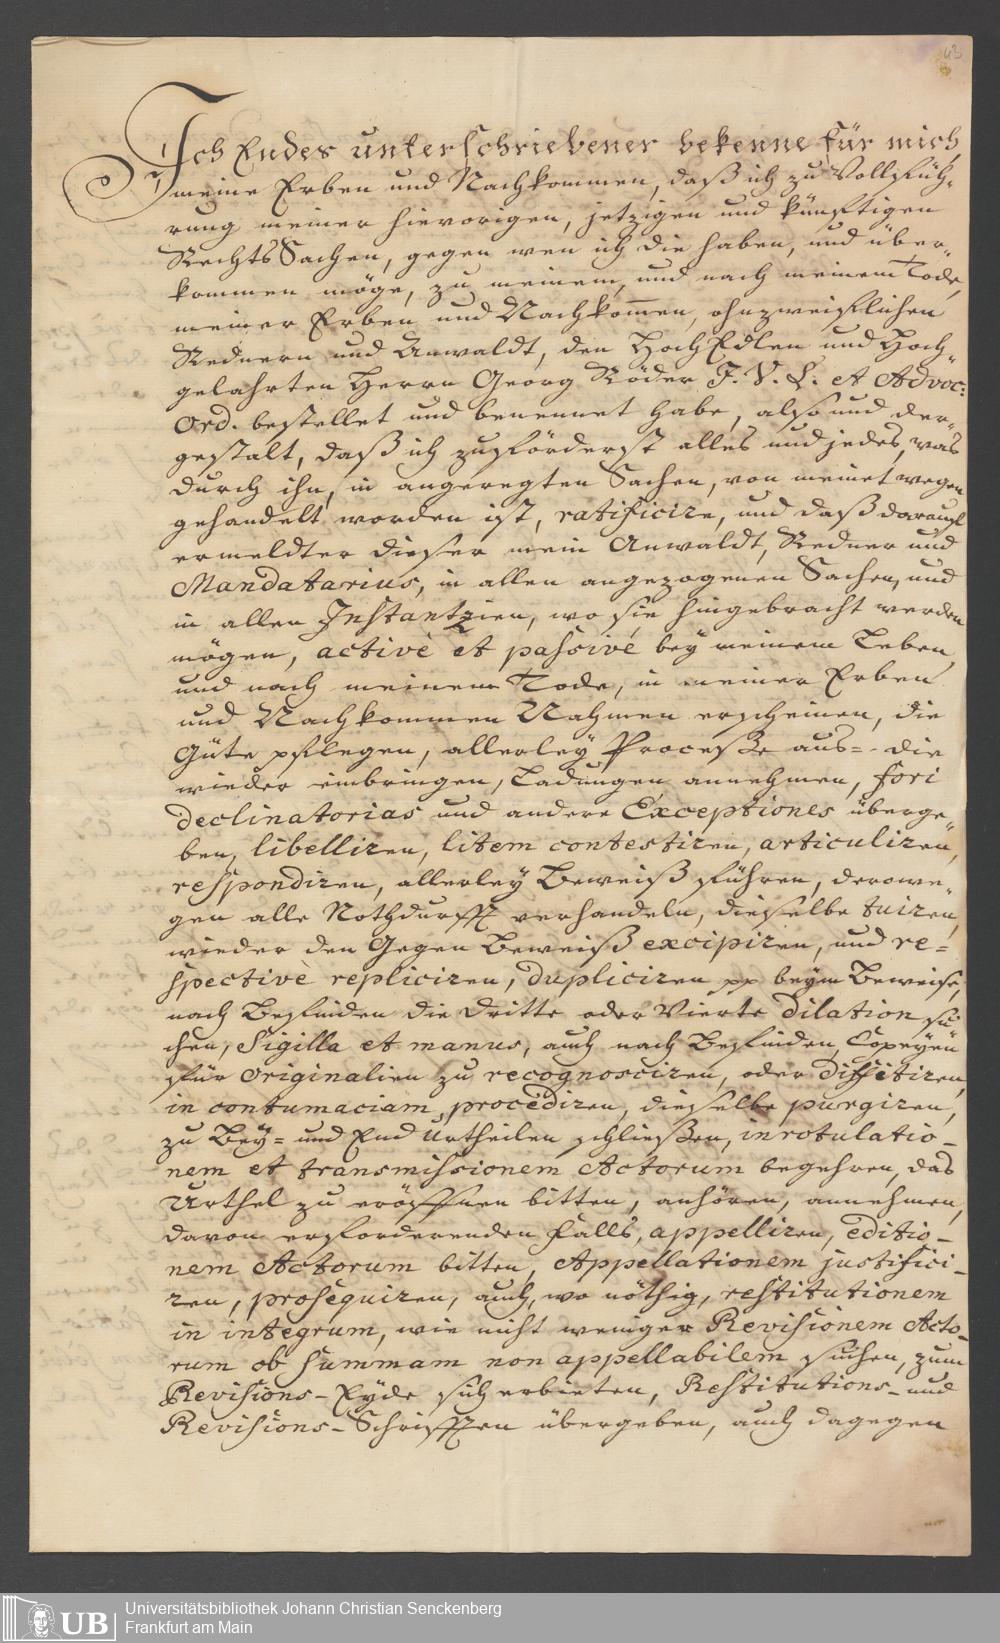 43
Ich Endes unterschriebener bekenne für mich,
meine Erben und Nachkommen, daß ich zu Vollfüh-
rung meiner hievorigen, jetzigen und künfftigen
RechtsSachen, gegen wen ich die haben, und über-
kommen möge, zu meinem, und nach meinem Tode,
meiner Erben und Nachkom̅en, ohnzweiflichen
Rednern und Anwaldt, den HochEdlen und Hoch-
gelahrten Herrn Georg Röder J. V. L. et Advoc:
Ord. bestellet und benennet habe, also und der-
gestalt, daß ich zuförderst alles und jedes, was
durch ihn, in angeregten Sachen, von meinet wegen
gehandelt worden ist, ratificire, und daß darauf
ermeldter dieser mein Anwaldt, Redner und
Mandatarius, in allen angezogenen Sachen, und
in allen Instantzien, wo sie hingebracht werden
mögen, activè et passivè bey meinem Leben,
und nach meinem Tode, in meiner Erben
und Nachkommen Nahmen erscheinen, die
Güte pflegen, allerley Processe aus- die
wieder einbringen, Ladungen annehmen, fori
declinatorias und andere Exceptiones überge-
ben, libelliren, litem contestiren, articuliren,
respondiren, allerley Beweiß führen, derowe-
gen alle Nothdurfft verhandeln, dieselbe tuiren,
wieder den Gegen Beweiß excipiren, und re-
spectivè repliciren, dupliciren pp beym Beweise,
nach Befinden die dritte oder Vierte dilation su-
chen, Sigilla et manus, auch nach Befinden, Copeyen
für Originalien zu recognosciren, oder diffitiren,
in contumaciam, procediren, dieselbe purgiren,
zu Bey- und End Urtheilen schließen, inrotulatio-
nem et transmissionem Actorum begehren, das
Urthel zu eröffnen bitten, anhören, annehmen,
davon erforderenden Falls, appelliren, editio-
nem Actorum bitten, Appellationem justifici-
ren, prosequiren, auch, wo nöthig, restitutionem
in integrum, wie nicht weniger Revisionem Acto-
rum ob summam non appellabilem suchen, zum
Revisions-Eyde sich erbieten, Restitutions- und
Revisions-Schrifften übergeben, auch dagegen
UB
Universitätsbibliothek Johann Christian Senckenberg
Frankfurt am Main